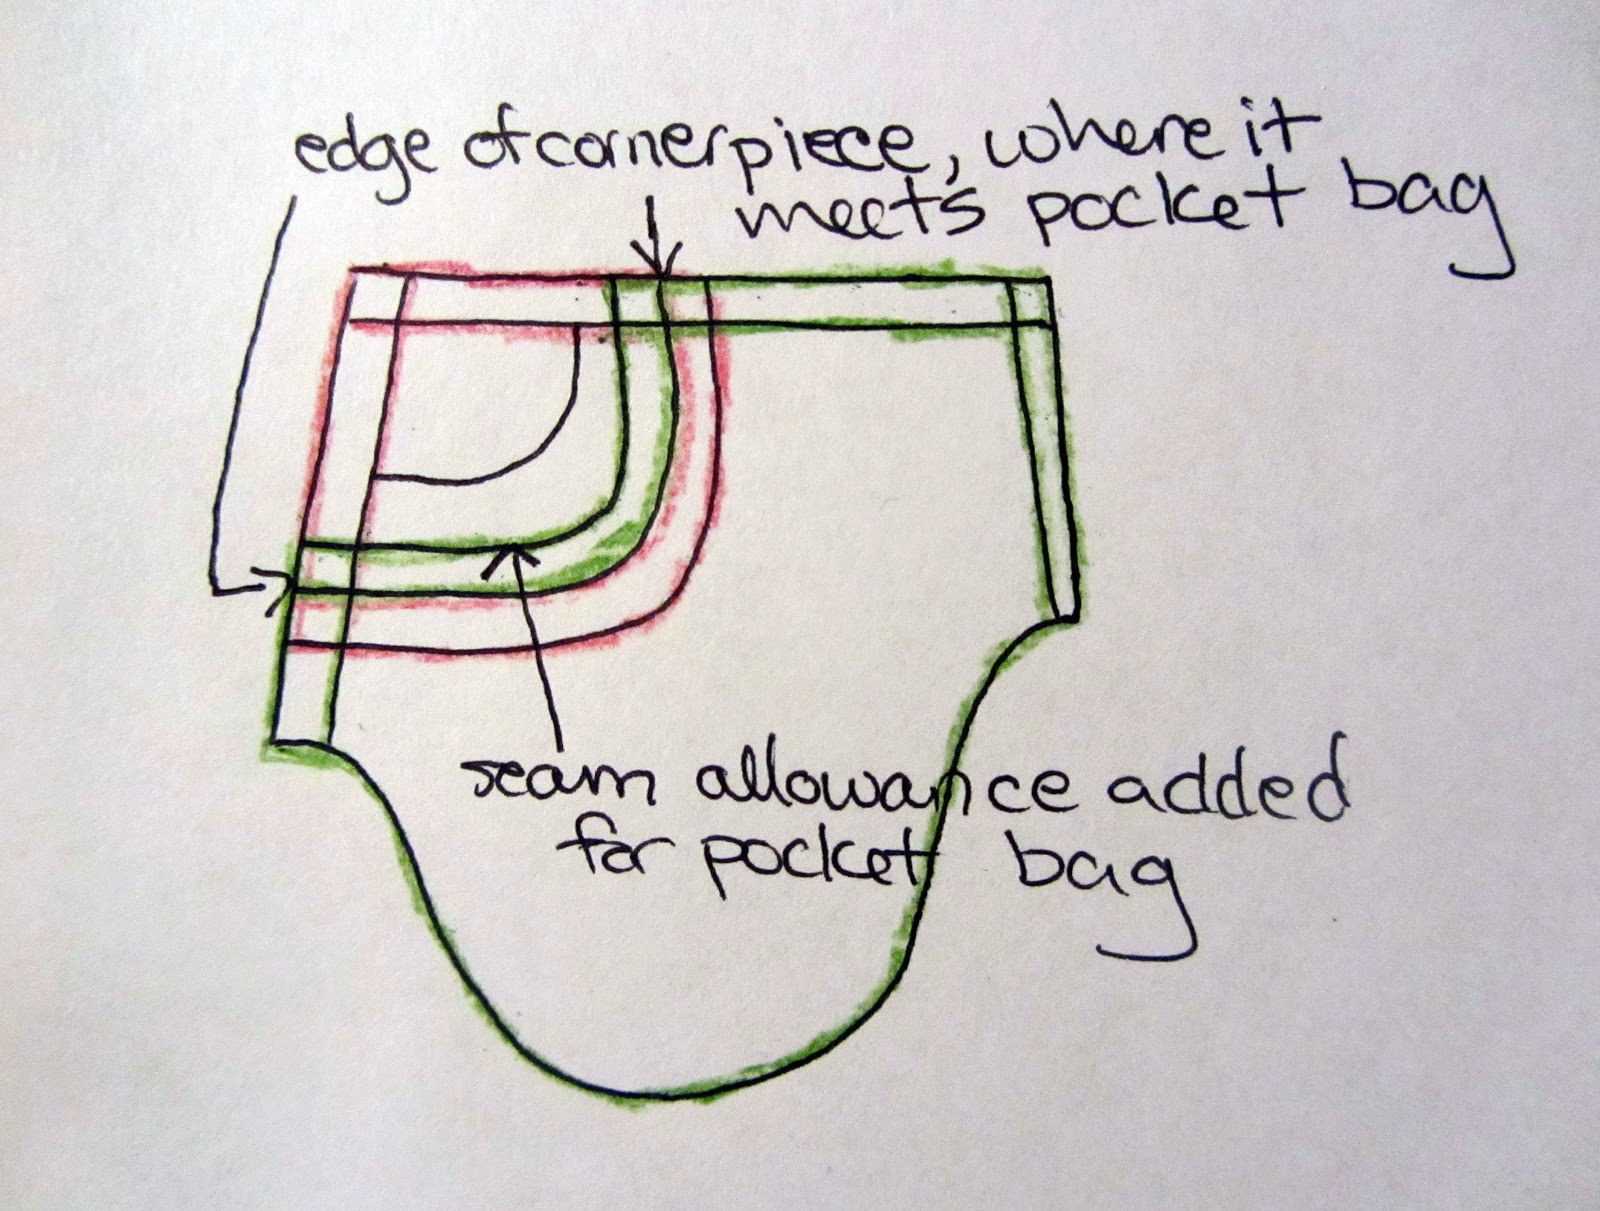 edge of corner piece, where it
meets pocket bag
seam allowance added
for pocket bag